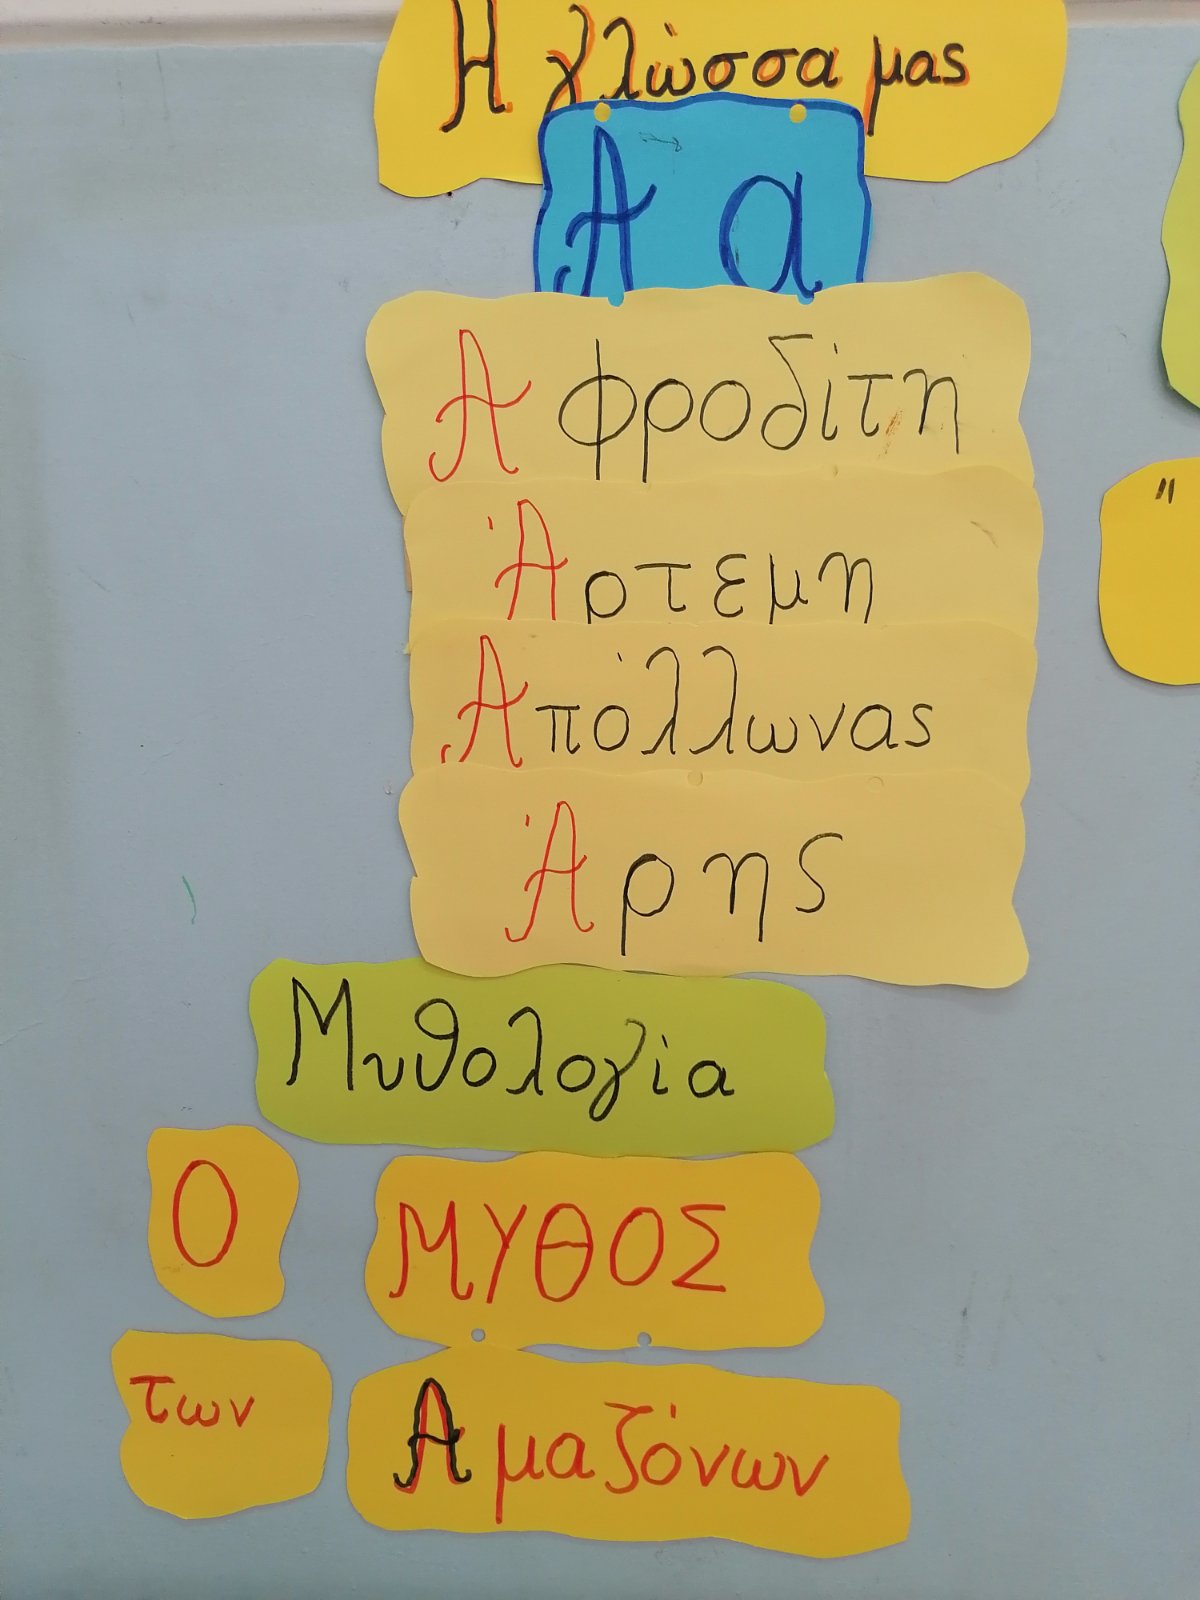 Η γλώσσα μας
Α α
Αφροδίτη
Άρτεμη
Απόλλωνας
Άρης
Μυθολογία
Ο ΜΥΘΟΣ
των Αμαζόνων